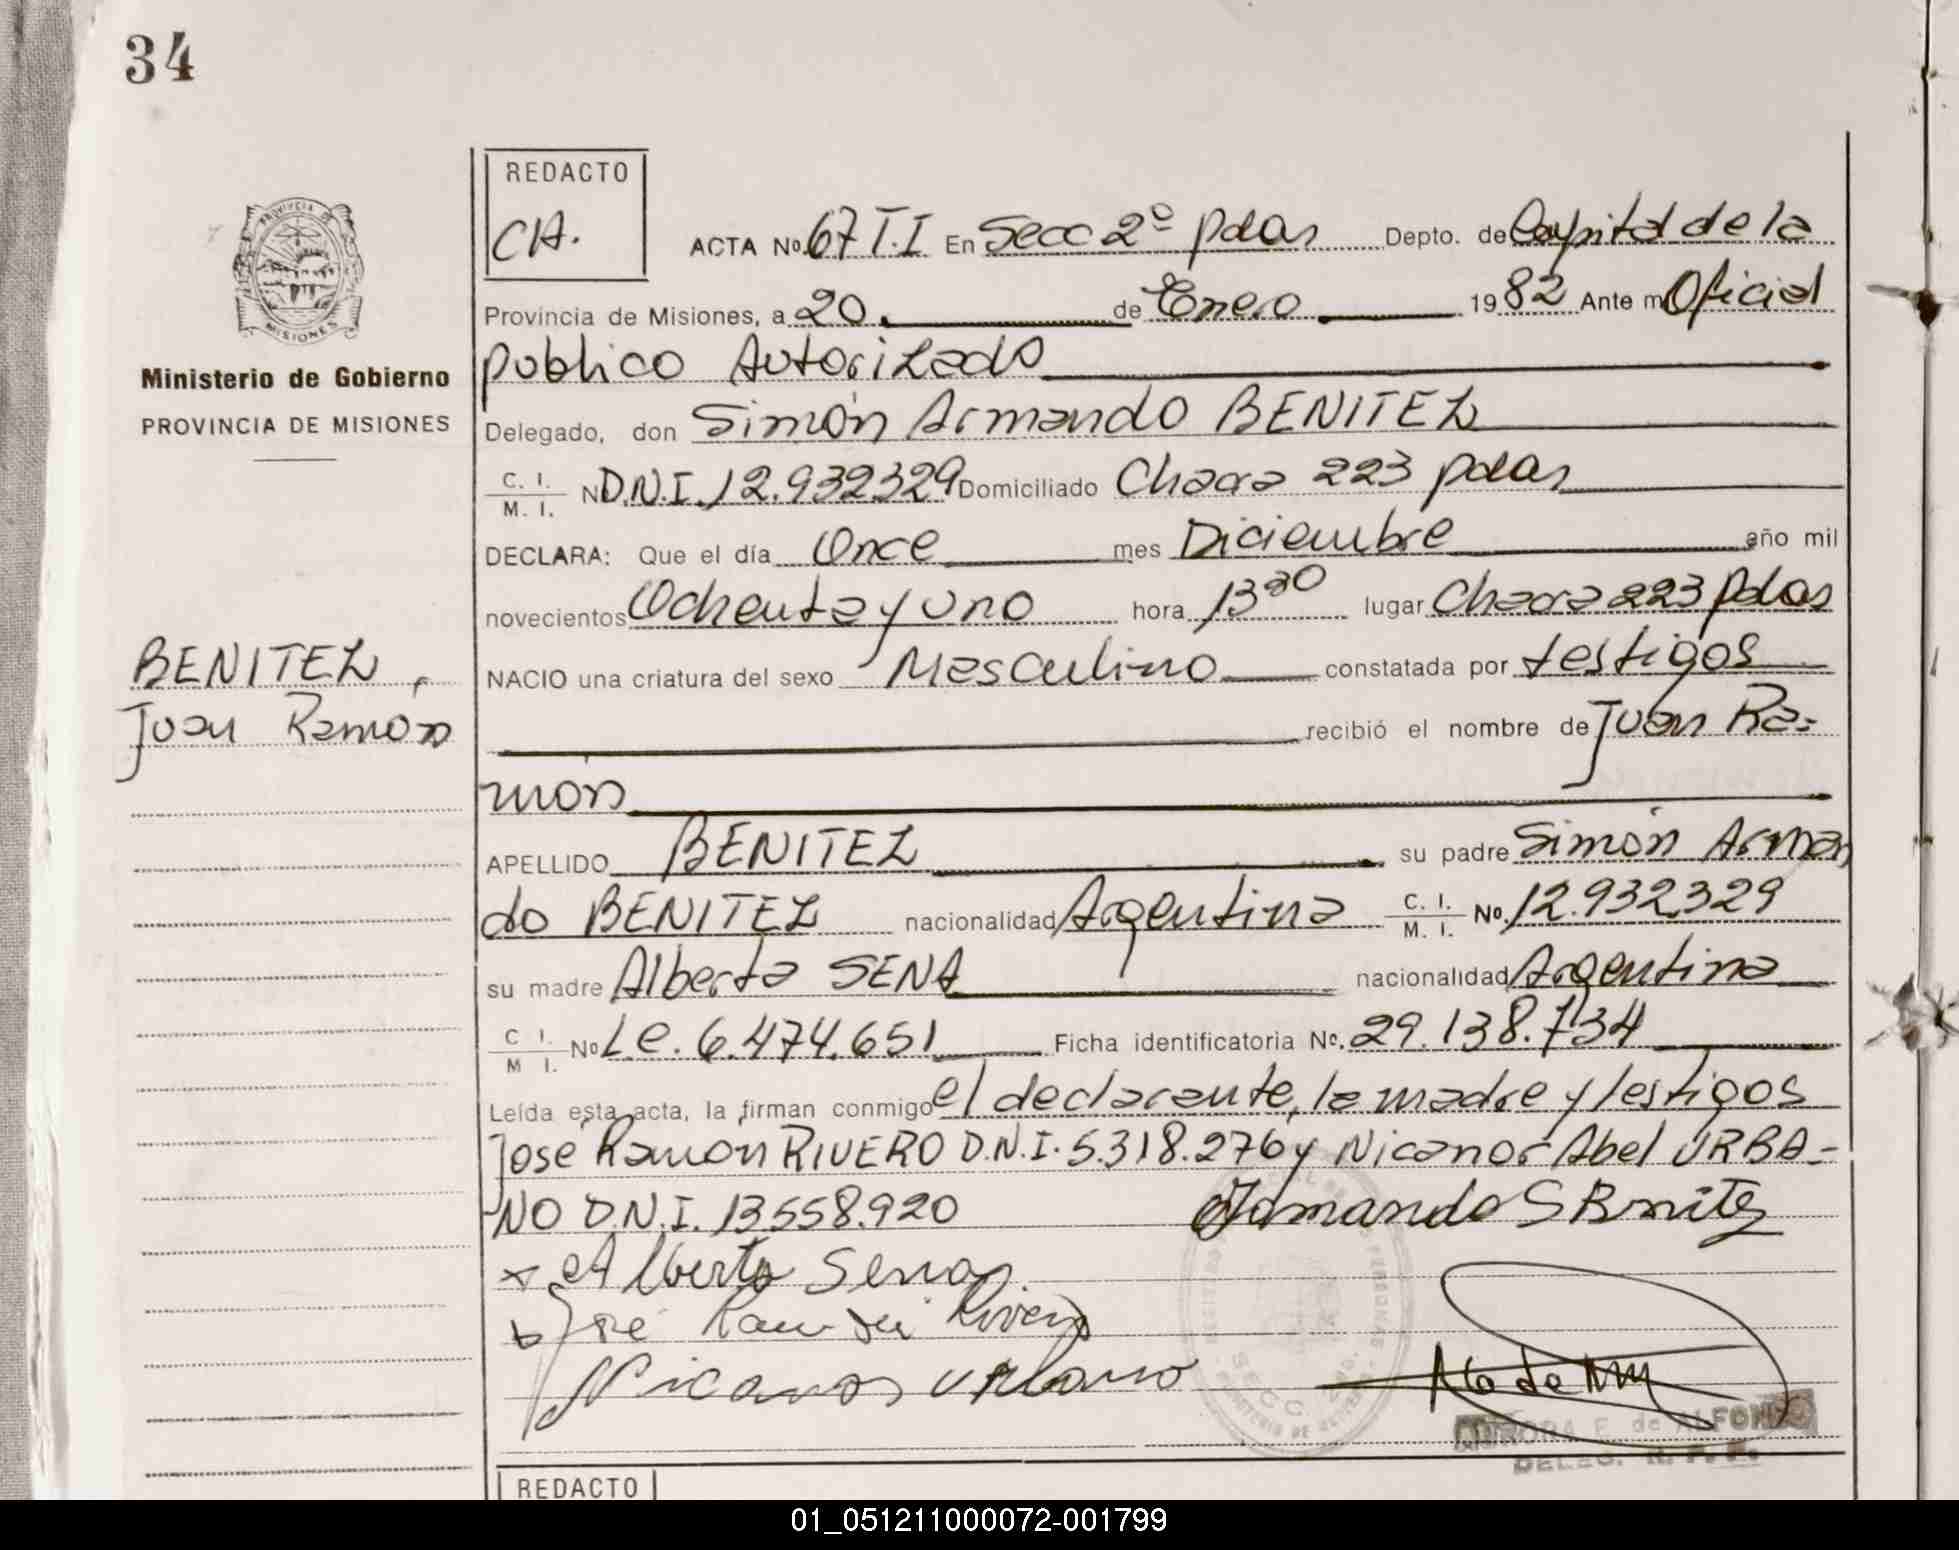 34
REDACTO
CA.
ACTA No. 67 T.I En Secc 2º pdas Depto. de Capital de la
Provincia de Misiones, a 20 de Enero 1982 Ante mi Oficial
publico Autorizado
Ministerio de Gobierno
PROVINCIA DE MISIONES
Delegado, don Simón Armando BENITEZ
C. I. M. I. N D.N.I. 12.932.329 Domiciliado Chacra 223 pdas
DECLARA: Que el día Once mes Diciembre año mil
novecientos Ochenta y uno hora 13 30 lugar Chacra 223 Pdas
NACIO una criatura del sexo Masculino constatada por testigos
BENITEZ,
Juan Ramón
recibió el nombre de Juan Ra-
món
APELLIDO BENITEZ su padre Simón Arman
do BENITEZ nacionalidad Argentina C. I. M. I. No. 12.932.329
su madre Alberta SENA nacionalidad Argentina
C I. M I. No L.e. 6.474.651 Ficha identificatoria No. 29.138.734
Leída esta acta, la firman conmigo el declarante, la madre y testigos
José Ramón RIVERO D.N.I. 5.318.276 y Nicanor Abel URBA-
NO D.N.I. 13.558.920
Armando S Benitez
Alberta Sena
José Ramón Rivero
Nicanor Urbano
AURORA E. de ALFONZO
DELEG. R. P. P.
REDACTO
01_051211000072-001799